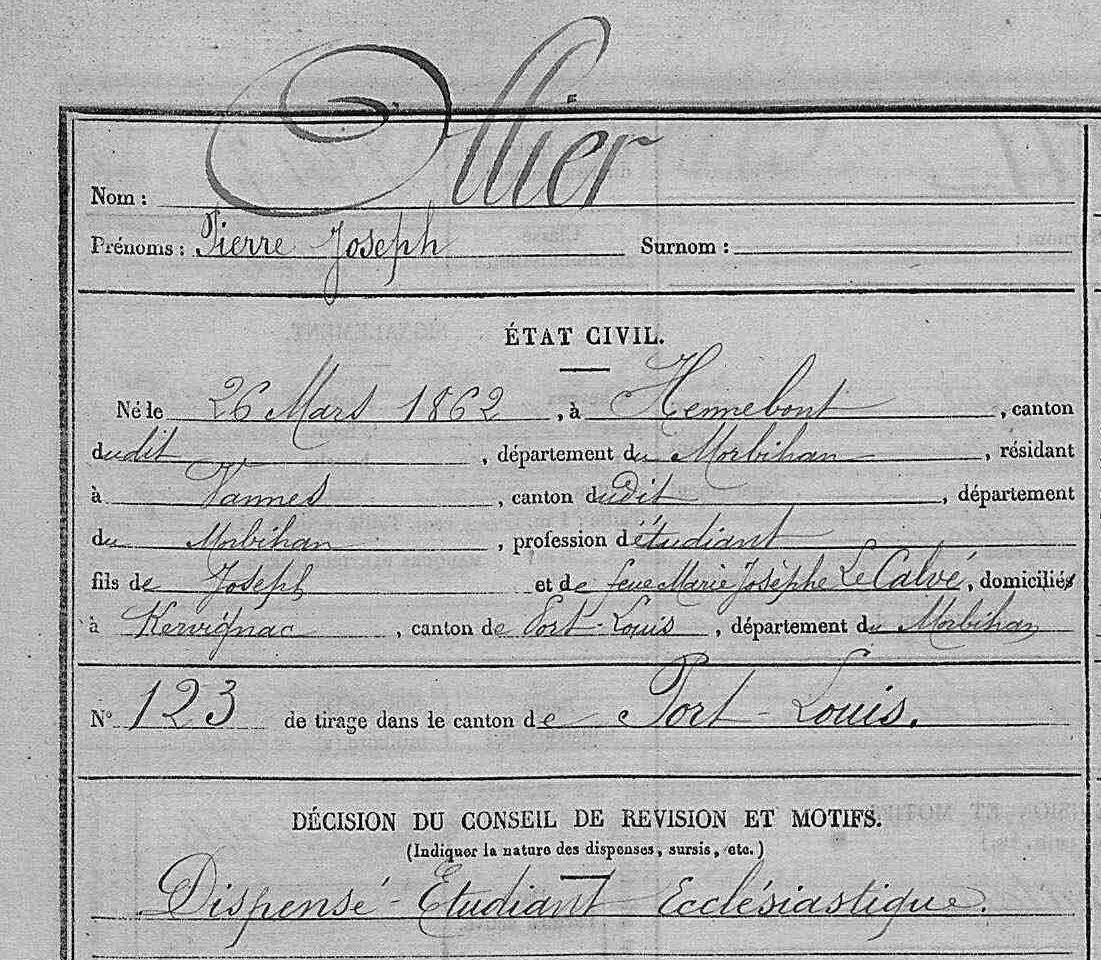 Ollier
Nom :
Prénoms : Pierre Joseph Surnom :
ÉTAT CIVIL.
Né le 26 Mars 1862 , à Hennebont , canton
dudit , département du Morbihan , résidant
à Vannes , canton dudit , département
du Morbihan , profession d'étudiant
fils de Joseph et de feue Marie Josèphe Le Calvé, domiciliés
à Kervignac , canton de Port-Louis , département du Morbihan
N° 123 de tirage dans le canton de Port-Louis.
DÉCISION DU CONSEIL DE REVISION ET MOTIFS.
(Indiquer la nature des dispenses, sursis, etc.)
Dispensé - Etudiant Ecclésiastique.